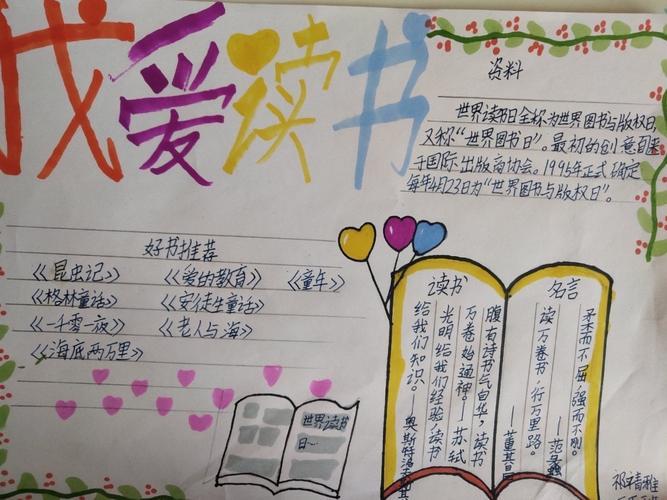 我爱读书
资料
世界读书日全称为世界图书与版权日,
又称"世界图书日"。最初的创意
于国际出版商协会。1995年正式确定
每年4月23日为"世界图书与版权日"。
好书推荐
《昆虫记》 《爱的教育》 《童年》
《格林童话》 《安徒生童话》
《一千零一夜》 《老人与海》
《海底两万里》
世界读书
日…
名言
柔而不屈,强而不刚。
读万卷书,行万里路。
——董其昌
读书
腹有诗书气自华,读书
万卷始通神!——苏轼
光明给我们经验,读书
给我们知识。